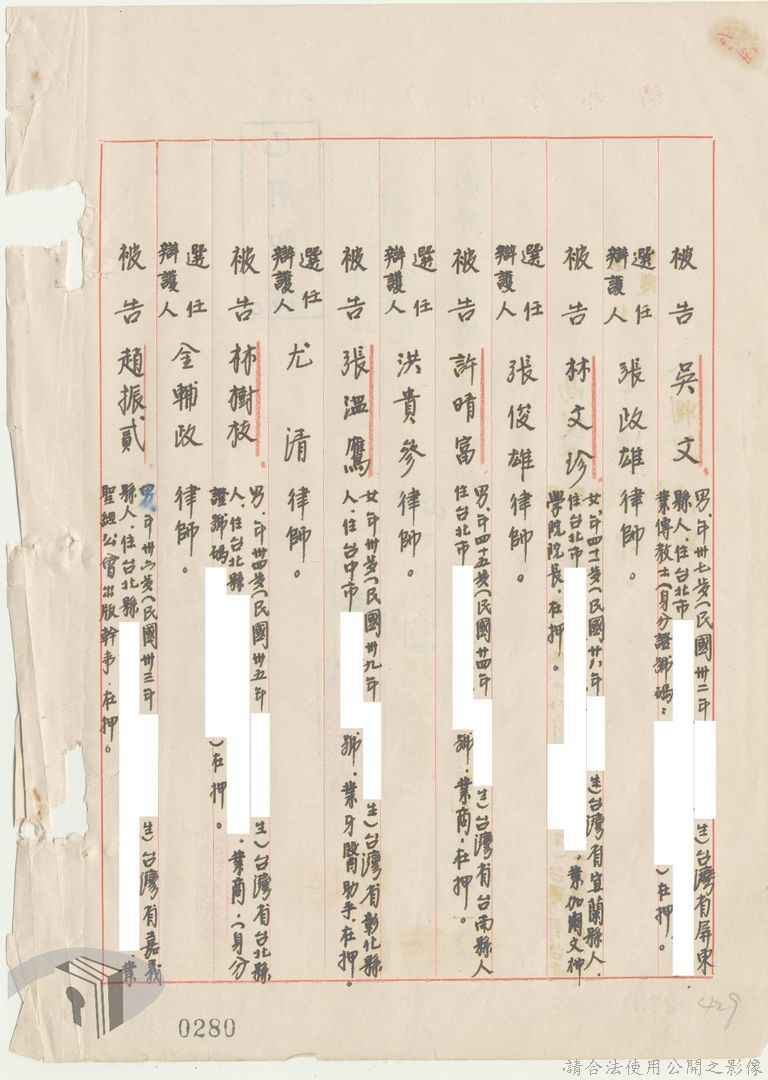 被告 吳文 男、年卅七歲(民國卅二年 生)台灣省屏東
縣人、住台北市
業傳教士(身分證號碼: )在押。
選任
辯護人 張政雄律師。
被告 林文珍 女、年四十一歲(民國廿八年 生)台灣省宜蘭縣人、
住台北市 、業加爾文神
學院院長、在押。
選任
辯護人 張俊雄律師。
被告 許晴富 男、年四十五歲(民國廿四年 生)台灣省台南縣人
住台北市 號、業商、在押。
選任
辯護人 洪貴參律師。
被告 張溫鷹 女、年卅歲(民國卅九年 生)台灣省彰化縣
人、住台中市 號、業牙醫助手、在押。
選任
辯護人 尤清律師。
被告 林樹枝 男、年卅四歲(民國卅五年 生)台灣省台北縣
人、住台北縣 、業商、(身分
證號碼 )在押。
選任
辯護人 金輔政律師。
被告 趙振貳 男、年卅六歲(民國卅三年 生)台灣省嘉義
縣人、住台北縣 、業
聖經公會出版幹事、在押。
0280
429
請合法使用公開之影像